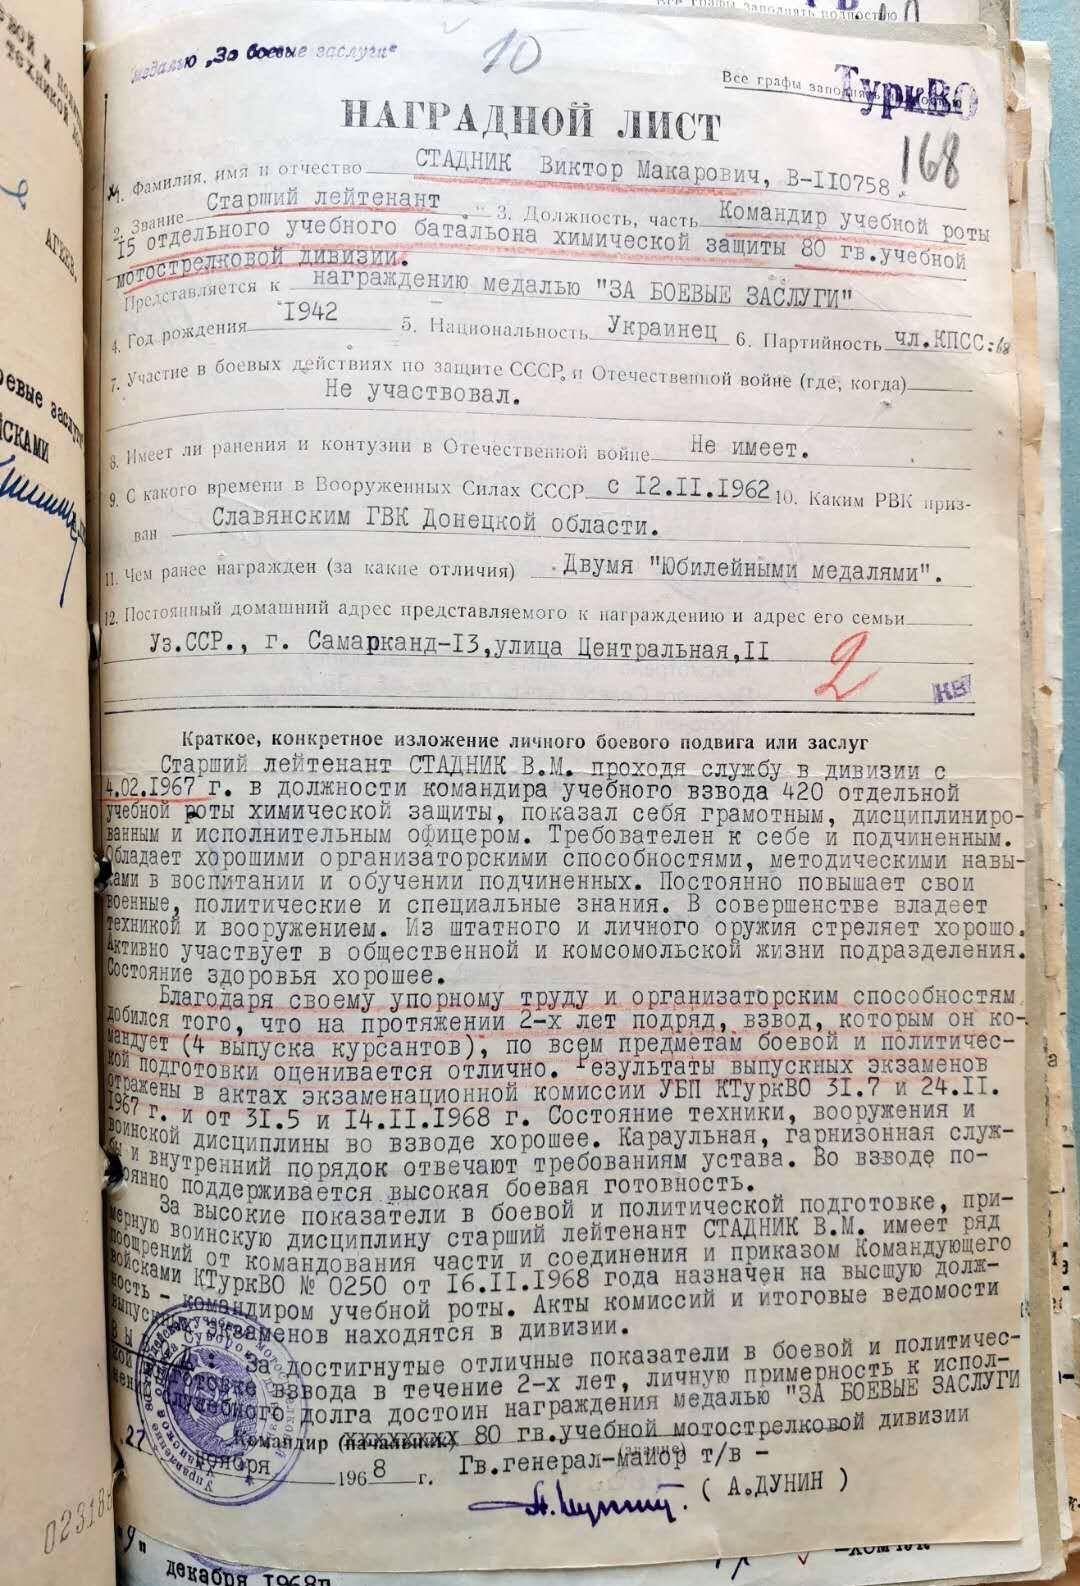 Все графы заполнять полностью
медалью „За боевые заслуги"
15
Все графы
ТуркВО
НАГРАДНОЙ ЛИСТ
168
1. Фамилия, имя и отчество СТАДНИК Виктор Макарович, В-110758.
2. Звание Старший лейтенант. 3. Должность, часть Командир учебной роты
15 отдельного учебного батальона химической защиты 80 гв.учебной
мотострелковой дивизии.
Представляется к награждению медалью "ЗА БОЕВЫЕ ЗАСЛУГИ"
4. Год рождения 1942 5. Национальность Украинец 6. Партийность чл.КПСС:68
7. Участие в боевых действиях по защите СССР и Отечественной войне (где, когда)
Не участвовал.
8. Имеет ли ранения и контузии в Отечественной войне Не имеет.
9. С какого времени в Вооруженных Силах СССР с 12.II.1962 10. Каким РВК приз-
ван Славянским ГВК Донецкой области.
11. Чем ранее награжден (за какие отличия) Двумя "Юбилейными медалями".
12. Постоянный домашний адрес представляемого к награждению и адрес его семьи
Уз.ССР., г. Самарканд-13,улица Центральная,II
2
КВ
Краткое, конкретное изложение личного боевого подвига или заслуг
Старший лейтенант СТАДНИК В.М. проходя службу в дивизии с
4.02.1967 г. в должности командира учебного взвода 420 отдельной
учебной роты химической защиты, показал себя грамотным, дисциплиниро-
ванным и исполнительным офицером. Требователен к себе и подчиненным.
Обладает хорошими организаторскими способностями, методическими навы-
ками в воспитании и обучении подчиненных. Постоянно повышает свои
военные, политические и специальные знания. В совершенстве владеет
техникой и вооружением. Из штатного и личного оружия стреляет хорошо.
Активно участвует в общественной и комсомольской жизни подразделения.
Состояние здоровья хорошее.
Благодаря своему упорному труду и организаторским способностям
добился того, что на протяжении 2-х лет подряд, взвод, которым он ко-
мандует (4 выпуска курсантов), по всем предметам боевой и политичес-
кой подготовки оценивается отлично. Результаты выпускных экзаменов
отражены в актах экзаменационной комиссии УБП КТуркВО 31.7 и 24.II.
1967 г. и от 31.5 и 14.II.1968 г. Состояние техники, вооружения и
воинской дисциплины во взводе хорошее. Караульная, гарнизонная служ-
бы и внутренний порядок отвечают требованиям устава. Во взводе по-
стоянно поддерживается высокая боевая готовность.
За высокие показатели в боевой и политической подготовке, при-
мерную воинскую дисциплину старший лейтенант СТАДНИК В.М. имеет ряд
поощрений от командования части и соединения и приказом Командующего
войсками КТуркВО № 0250 от 16.II.1968 года назначен на высшую долж-
ность - командиром учебной роты. Акты комиссий и итоговые ведомости
выпускных экзаменов находятся в дивизии.
За достигнутые отличные показатели в боевой и политичес-
кой подготовке взвода в течение 2-х лет, личную примерность к испол-
нению служебного долга достоин награждения медалью "ЗА БОЕВЫЕ ЗАСЛУГИ
Командир (начальник) 80 гв.учебной мотострелковой дивизии
(звание)
27 ноября 1968 г. Гв.генерал-майор т/в -
(А.ДУНИН)
02318
"9" декабря 1968г.
АГЕЕВ,